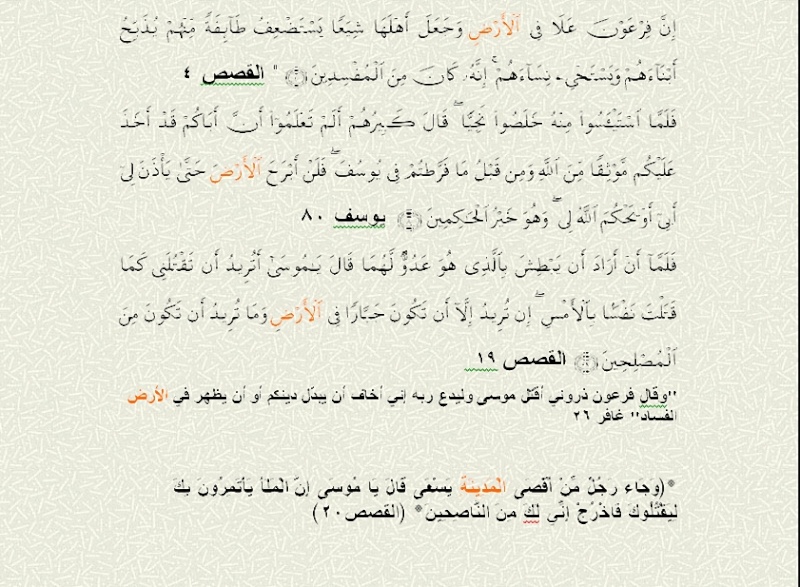 إِنَّ فِرْعَوْنَ عَلَا فِي ٱلْأَرْضِ وَجَعَلَ أَهْلَهَا شِيَعًا يَسْتَضْعِفُ طَآئِفَةً مِّنْهُمْ يُذَبِّحُ
أَبْنَآءَهُمْ وَيَسْتَحْىِۦ نِسَآءَهُمْ ۚ إِنَّهُۥ كَانَ مِنَ ٱلْمُفْسِدِينَ " القصص ٤
فَلَمَّا ٱسْتَيْـَٔسُوا۟ مِنْهُ خَلَصُوا۟ نَجِيًّا ۖ قَالَ كَبِيرُهُمْ أَلَمْ تَعْلَمُوٓا۟ أَنَّ أَبَاكُمْ قَدْ أَخَذَ
عَلَيْكُم مَّوْثِقًا مِّنَ ٱللَّهِ وَمِن قَبْلُ مَا فَرَّطتُمْ فِى يُوسُفَ ۖ فَلَنْ أَبْرَحَ ٱلْأَرْضَ حَتَّىٰ يَأْذَنَ لِىٓ
أَبِىٓ أَوْ يَحْكُمَ ٱللَّهُ لِى ۖ وَهُوَ خَيْرُ ٱلْحَـٰكِمِينَ يوسف ٨٠
فَلَمَّآ أَنْ أَرَادَ أَن يَبْطِشَ بِٱلَّذِى هُوَ عَدُوٌّ لَّهُمَا قَالَ يَـٰمُوسَىٰٓ أَتُرِيدُ أَن تَقْتُلَنِى كَمَا
قَتَلْتَ نَفْسًۢا بِٱلْأَمْسِ ۖ إِن تُرِيدُ إِلَّآ أَن تَكُونَ جَبَّارًا فِى ٱلْأَرْضِ وَمَا تُرِيدُ أَن تَكُونَ مِنَ
ٱلْمُصْلِحِينَ القصص ١٩
"وقال فرعون ذروني أقتل موسى وليدع ربه إني أخاف أن يبدّل دينكم أو أن يظهر في الأرض
الفساد" غافر ٢٦
*(وجاء رجُلٌ مّنْ أقصى المَدينَة يسْعَى قالَ يا مُوسى إنّ المَلأ يأتمرُونَ بكَ
ليقْتُلُوكَ فَاخْرُجْ إنّى لكَ منَ النّاصحين* (القصص٢٠)